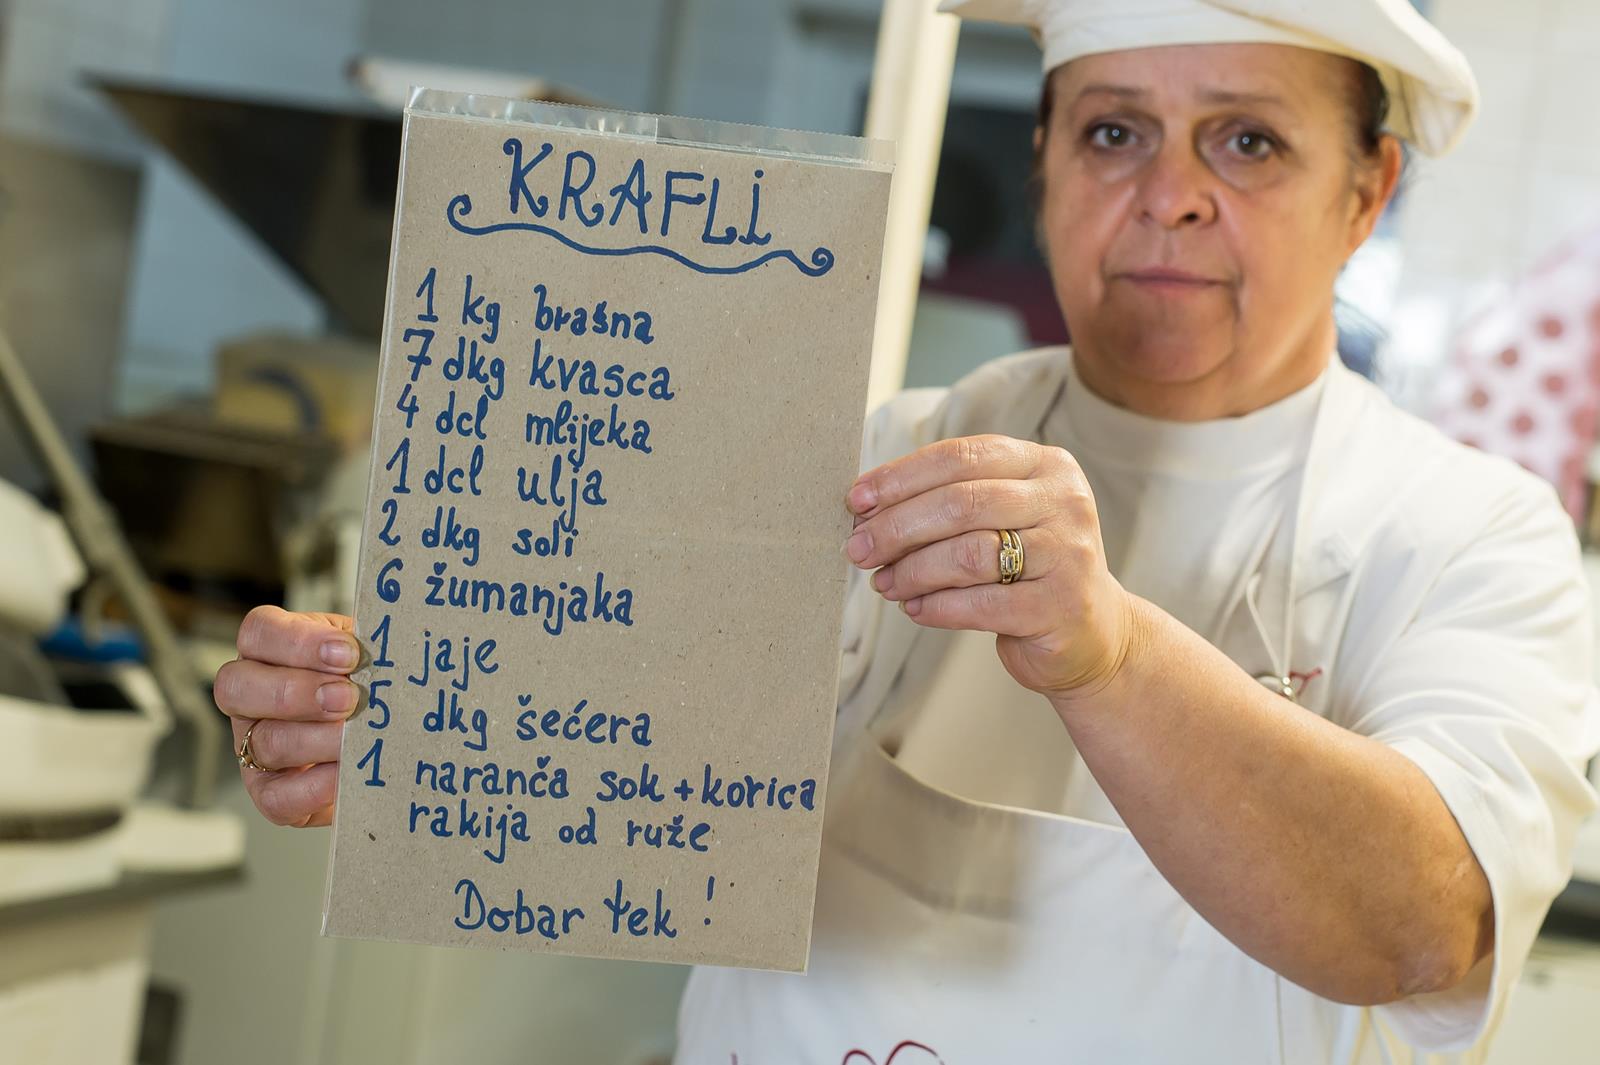 KRAFLI
1 kg brašna
7 dkg kvasca
4 dcl mlijeka
1 dcl ulja
2 dkg soli
6 žumanjaka
1 jaje
5 dkg šećera
1 naranča sok + korica
rakija od ruže
Dobar tek !